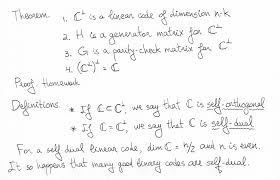 Theorem 1. C⊥ is a linear code of dimension n-k
2. H is a generator matrix for C⊥
3. G is a parity-check matrix for C⊥
4. (C⊥)⊥ = C
Proof Homework
Definitions. * If C ⊆ C⊥, we say that C is self-orthogonal
* If C = C⊥, we say that C is self-dual
For a self dual linear code, dim C = n/2 and n is even.
It so happens that many good binary codes are self-dual.